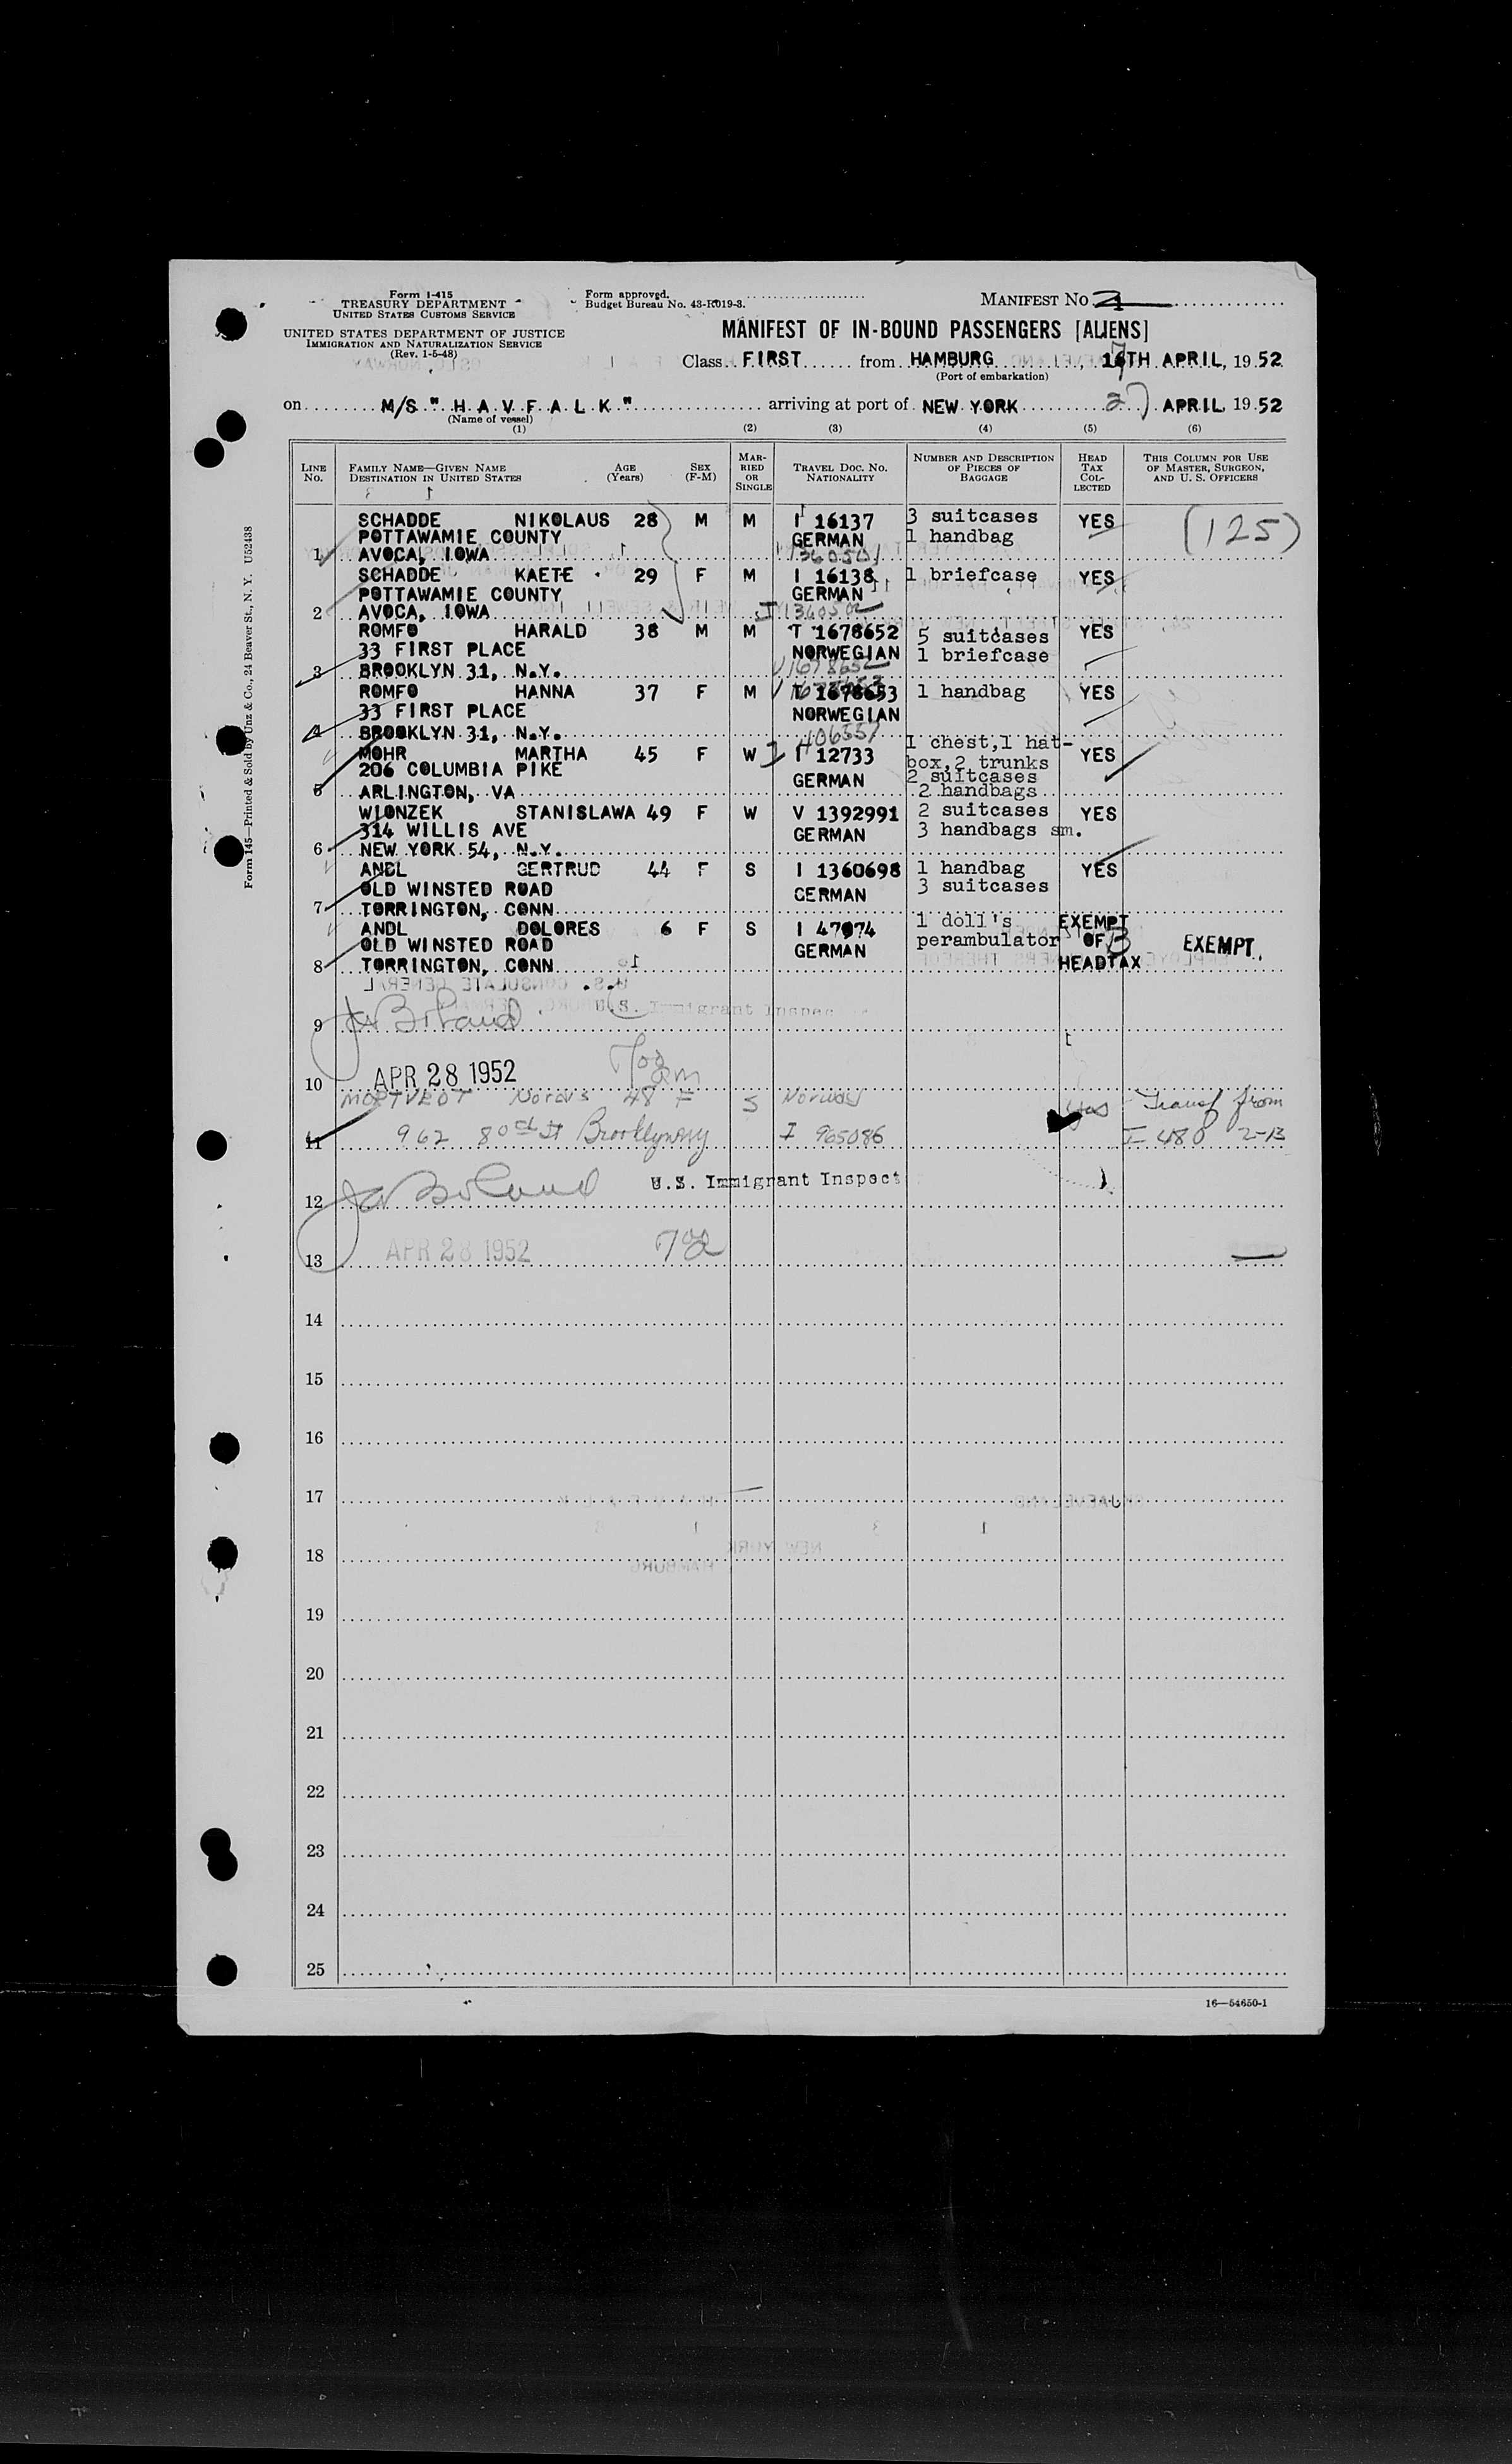 Form I-415
TREASURY DEPARTMENT
UNITED STATES CUSTOMS SERVICE
UNITED STATES DEPARTMENT OF JUSTICE
IMMIGRATION AND NATURALIZATION SERVICE
(Rev. 1-5-48)
Form approved.
Budget Bureau No. 43-R019-3.
MANIFEST No.
MANIFEST OF IN-BOUND PASSENGERS [ALIENS]
Class FIRST from HAMBURG, 17TH APRIL, 1952
(Port of embarkation)
on M/S "H A V F A L K" arriving at port of NEW YORK 27 APRIL 1952
(Name of vessel)
(1) (2) (3) (4) (5) (6)
LINE No. FAMILY NAME—GIVEN NAME DESTINATION IN UNITED STATES AGE (Years) SEX (F-M) MARRIED OR SINGLE TRAVEL DOC. No. NATIONALITY NUMBER AND DESCRIPTION OF PIECES OF BAGGAGE HEAD TAX COLLECTED THIS COLUMN FOR USE OF MASTER, SURGEON, AND U. S. OFFICERS
SCHADDE NIKOLAUS 28 M M I 16137 3 suitcases YES (125)
POTTAWAMIE COUNTY GERMAN 1 handbag
1 AVOCA, IOWA 1360501
SCHADDE KAETE 29 F M I 16138 1 briefcase YES
POTTAWAMIE COUNTY GERMAN
2 AVOCA, IOWA I 1360502
ROMFO HARALD 38 M M T 1678652 5 suitcases YES
33 FIRST PLACE NORWEGIAN 1 briefcase
3 BROOKLYN 31, N.Y. V 1678652
ROMFO HANNA 37 F M T 1678653 1 handbag YES
33 FIRST PLACE NORWEGIAN
4 BROOKLYN 31, N.Y. 406557
MOHR MARTHA 45 F W I 12733 1 chest,1 hat- YES
206 COLUMBIA PIKE GERMAN box,2 trunks
2 suitcases
5 ARLINGTON, VA 2 handbags
WIONZEK STANISLAWA 49 F W V 1392991 2 suitcases YES
314 WILLIS AVE GERMAN 3 handbags sm.
6 NEW YORK 54, N.Y.
ANDL GERTRUD 44 F S I 1360698 1 handbag YES
OLD WINSTED ROAD GERMAN 3 suitcases
7 TORRINGTON, CONN
ANDL DOLORES 6 F S I 47074 1 doll's EXEMPT
OLD WINSTED ROAD GERMAN perambulator OF EXEMPT.
8 TORRINGTON, CONN HEADTAX
9 U.S. Immigrant Inspec
10 APR 28 1952
MORTVEDT 48 F S Norway Yes Transf from
11 962 80th St Brooklyn NY I 965086 I-480 2-13
12 U.S. Immigrant Inspect
13 APR 28 1952
14
15
16
17
18
19
20
21
22
23
24
25
16—54650-1
Form 145—Printed & Sold by Unz & Co., 24 Beaver St., N. Y. U52438